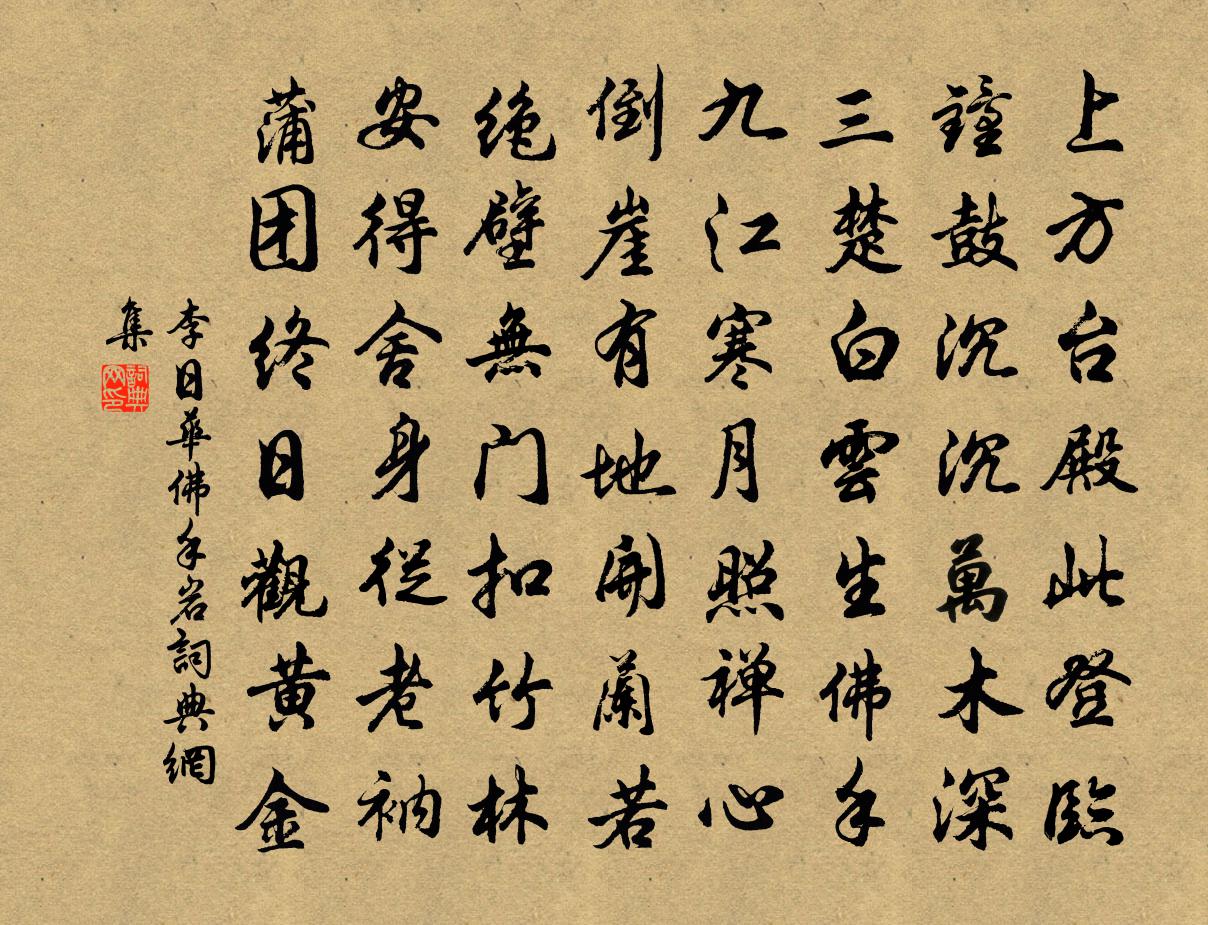 上方台殿此登臨
鐘鼓沉沉萬木深
三楚白雲生佛手
九江寒月照禅心
倒崖有地開蘭若
绝壁無门扣竹林
安得舍身従老衲
蒲团终日觀黄金
李日華佛手岩詞典網
集
詞典
网印